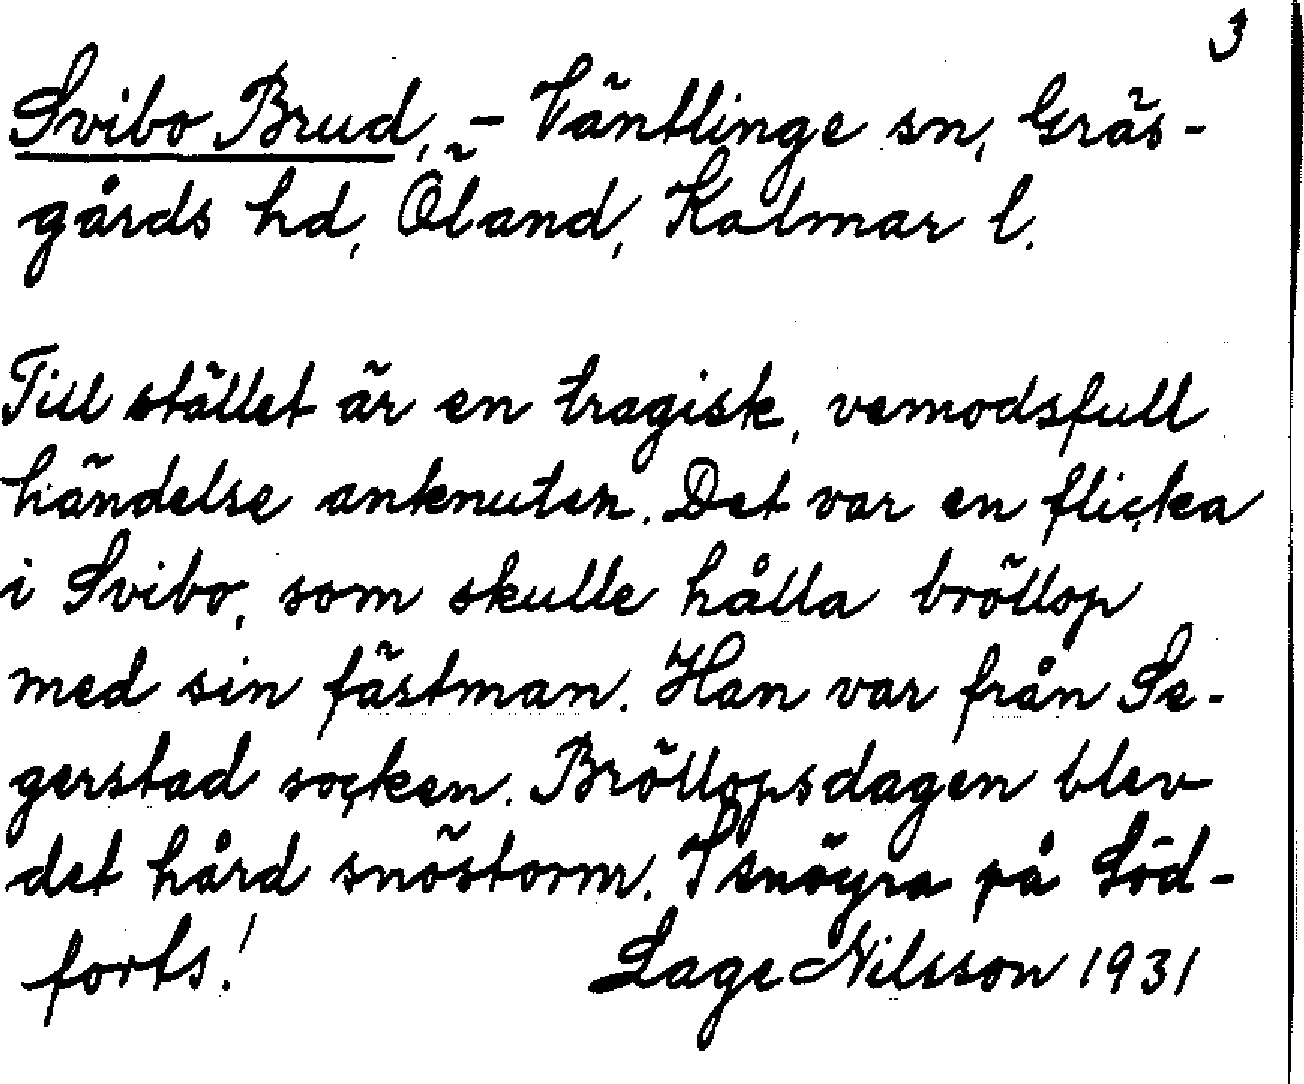 3
Svibo Brud, - Väntlinge sn, Gräs-
gårds hd, Öland, Kalmar l.
Till stället är en tragisk, vemodsfull
händelse anknuten. Det var en flicka
i Svibo, som skulle hålla bröllop
med sin fästman. Han var från Se-
gerstad socken. Bröllopsdagen blev
det hård snöstorm. I snöyra på Söd-
forts.! Lage Nilsson 1931